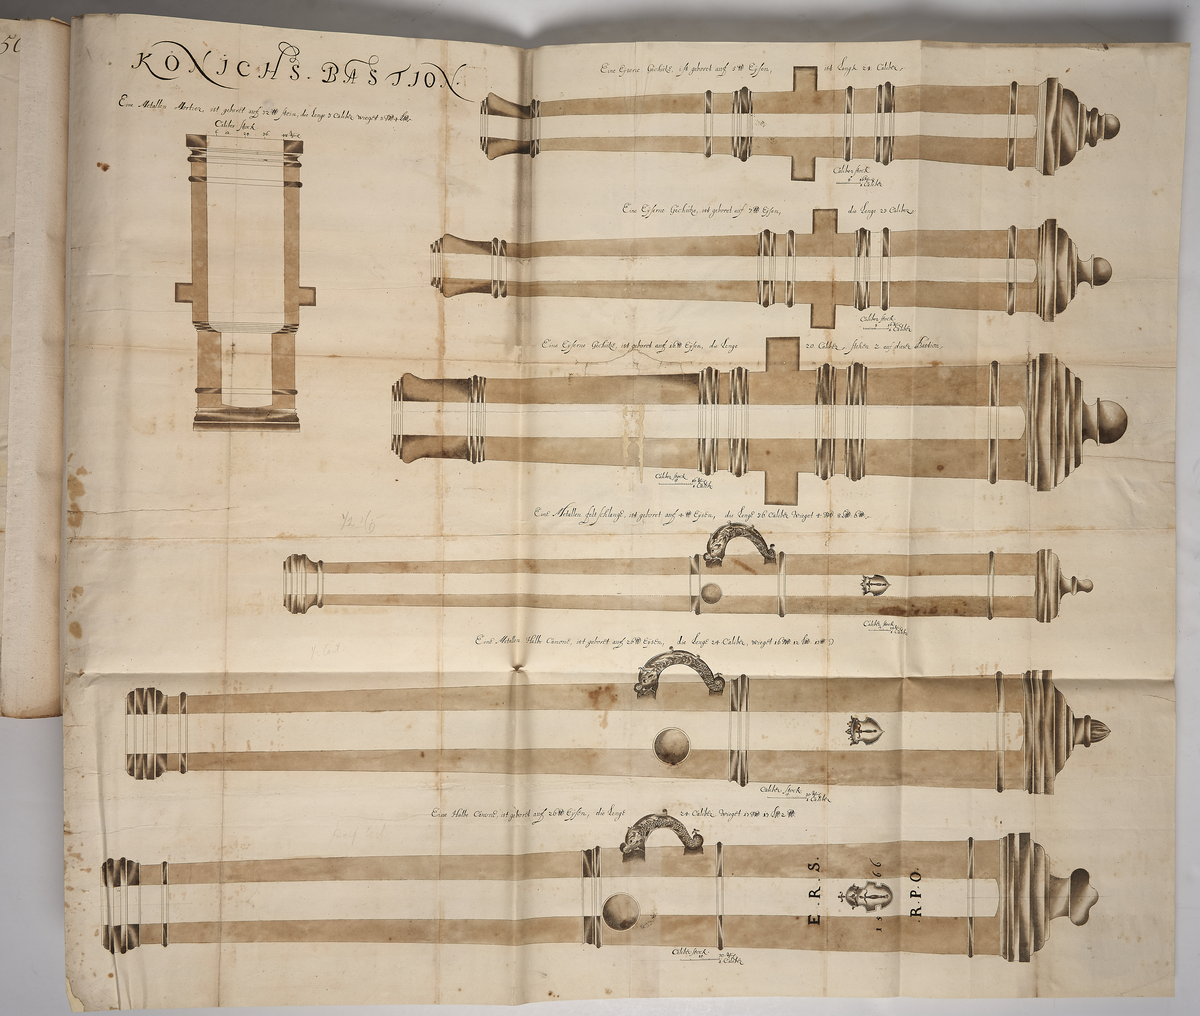 50
KÖNICHS. BASTION.
Eine Metallen Mortier, ist geboret auf 72 ℔ stein, die lenge 3 Caliber wieget
Caliber stock
Eine Eyserne Geschütz, ist geboret auf 5 ℔ Eysen, ist Lengk 24 Caliber
Caliber stock
1 Caliber
Eine Eyserne Geschütz, ist geboret auf 7 ℔ Eysen, die Lenge 23 Caliber
Caliber stock
1 Caliber
Eine Eyserne Geschütz, ist geboret auf 16 ℔ Eysen, die Lenge 20 Caliber, stehen 2 auf dieser Bastion.
Caliber stock
1 Caliber
Eine Metallen felt schlange, ist geboret auf 4 ℔ Eysen, die Lenge 36 Caliber Wieget
Caliber stock
1 Caliber
Eine Metallen Halbe Canone, ist geboret auf 26 ℔ Eysen, die Lenge 24 Caliber, wieget 16
Caliber stock
1 Caliber
Eine Halbe Canone, ist geboret auf 26 ℔ Eysen, die Lenge 24 Caliber Wieget
E.R.S.
1566
R.P.O.
Caliber stock
1 Caliber